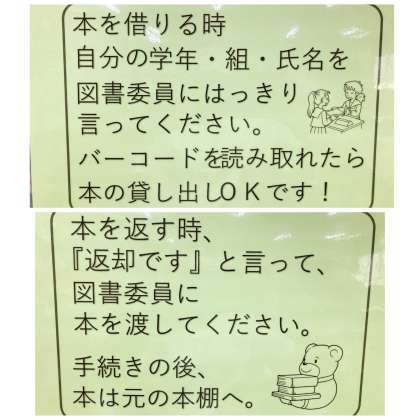 本を借りる時
自分の学年・組・氏名を
図書委員にはっきり
言ってください。
バーコードを読み取れたら
本の貸し出しＯＫです！
本を返す時、
『返却です』と言って、
図書委員に
本を渡してください。
手続きの後、
本は元の本棚へ。